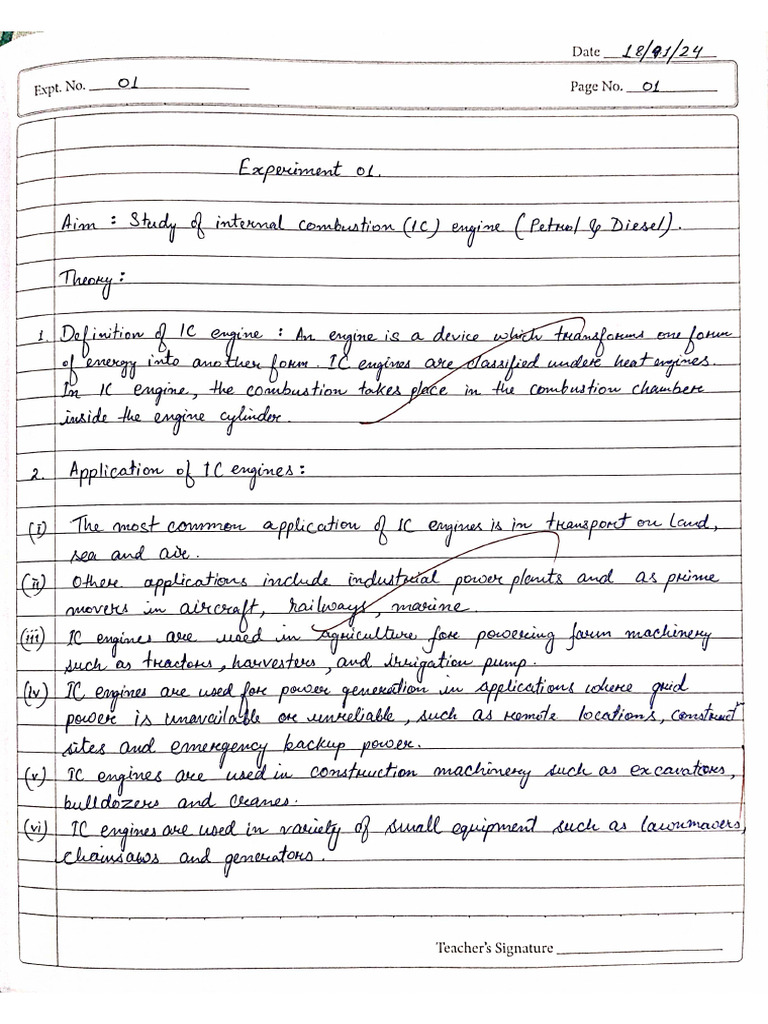 Date 18/01/24
Expt. No. 01
Page No. 01
Experiment 01.
Aim : Study of internal combustion (IC) engine (Petrol & Diesel).
Theory :
1. Definition of IC engine : An engine is a device which transforms one form
of energy into another form. IC engines are classified under heat engines.
In IC engine, the combustion takes place in the combustion chamber
inside the engine cylinder.
2. Application of IC engines :
(i) The most common application of IC engines is in transport on land,
sea and air.
(ii) Other applications include industrial power plants and as prime
movers in aircraft, railways, marine.
(iii) IC engines are used in agriculture for powering farm machinery
such as tractors, harvesters, and irrigation pump.
(iv) IC engines are used for power generation in applications where grid
power is unavailable or unreliable, such as remote locations, construct
sites and emergency backup power.
(v) IC engines are used in construction machinery such as excavators,
bulldozers and cranes.
(vi) IC engines are used in variety of small equipment such as lawnmowers,
chainsaws and generators.
Teacher's Signature